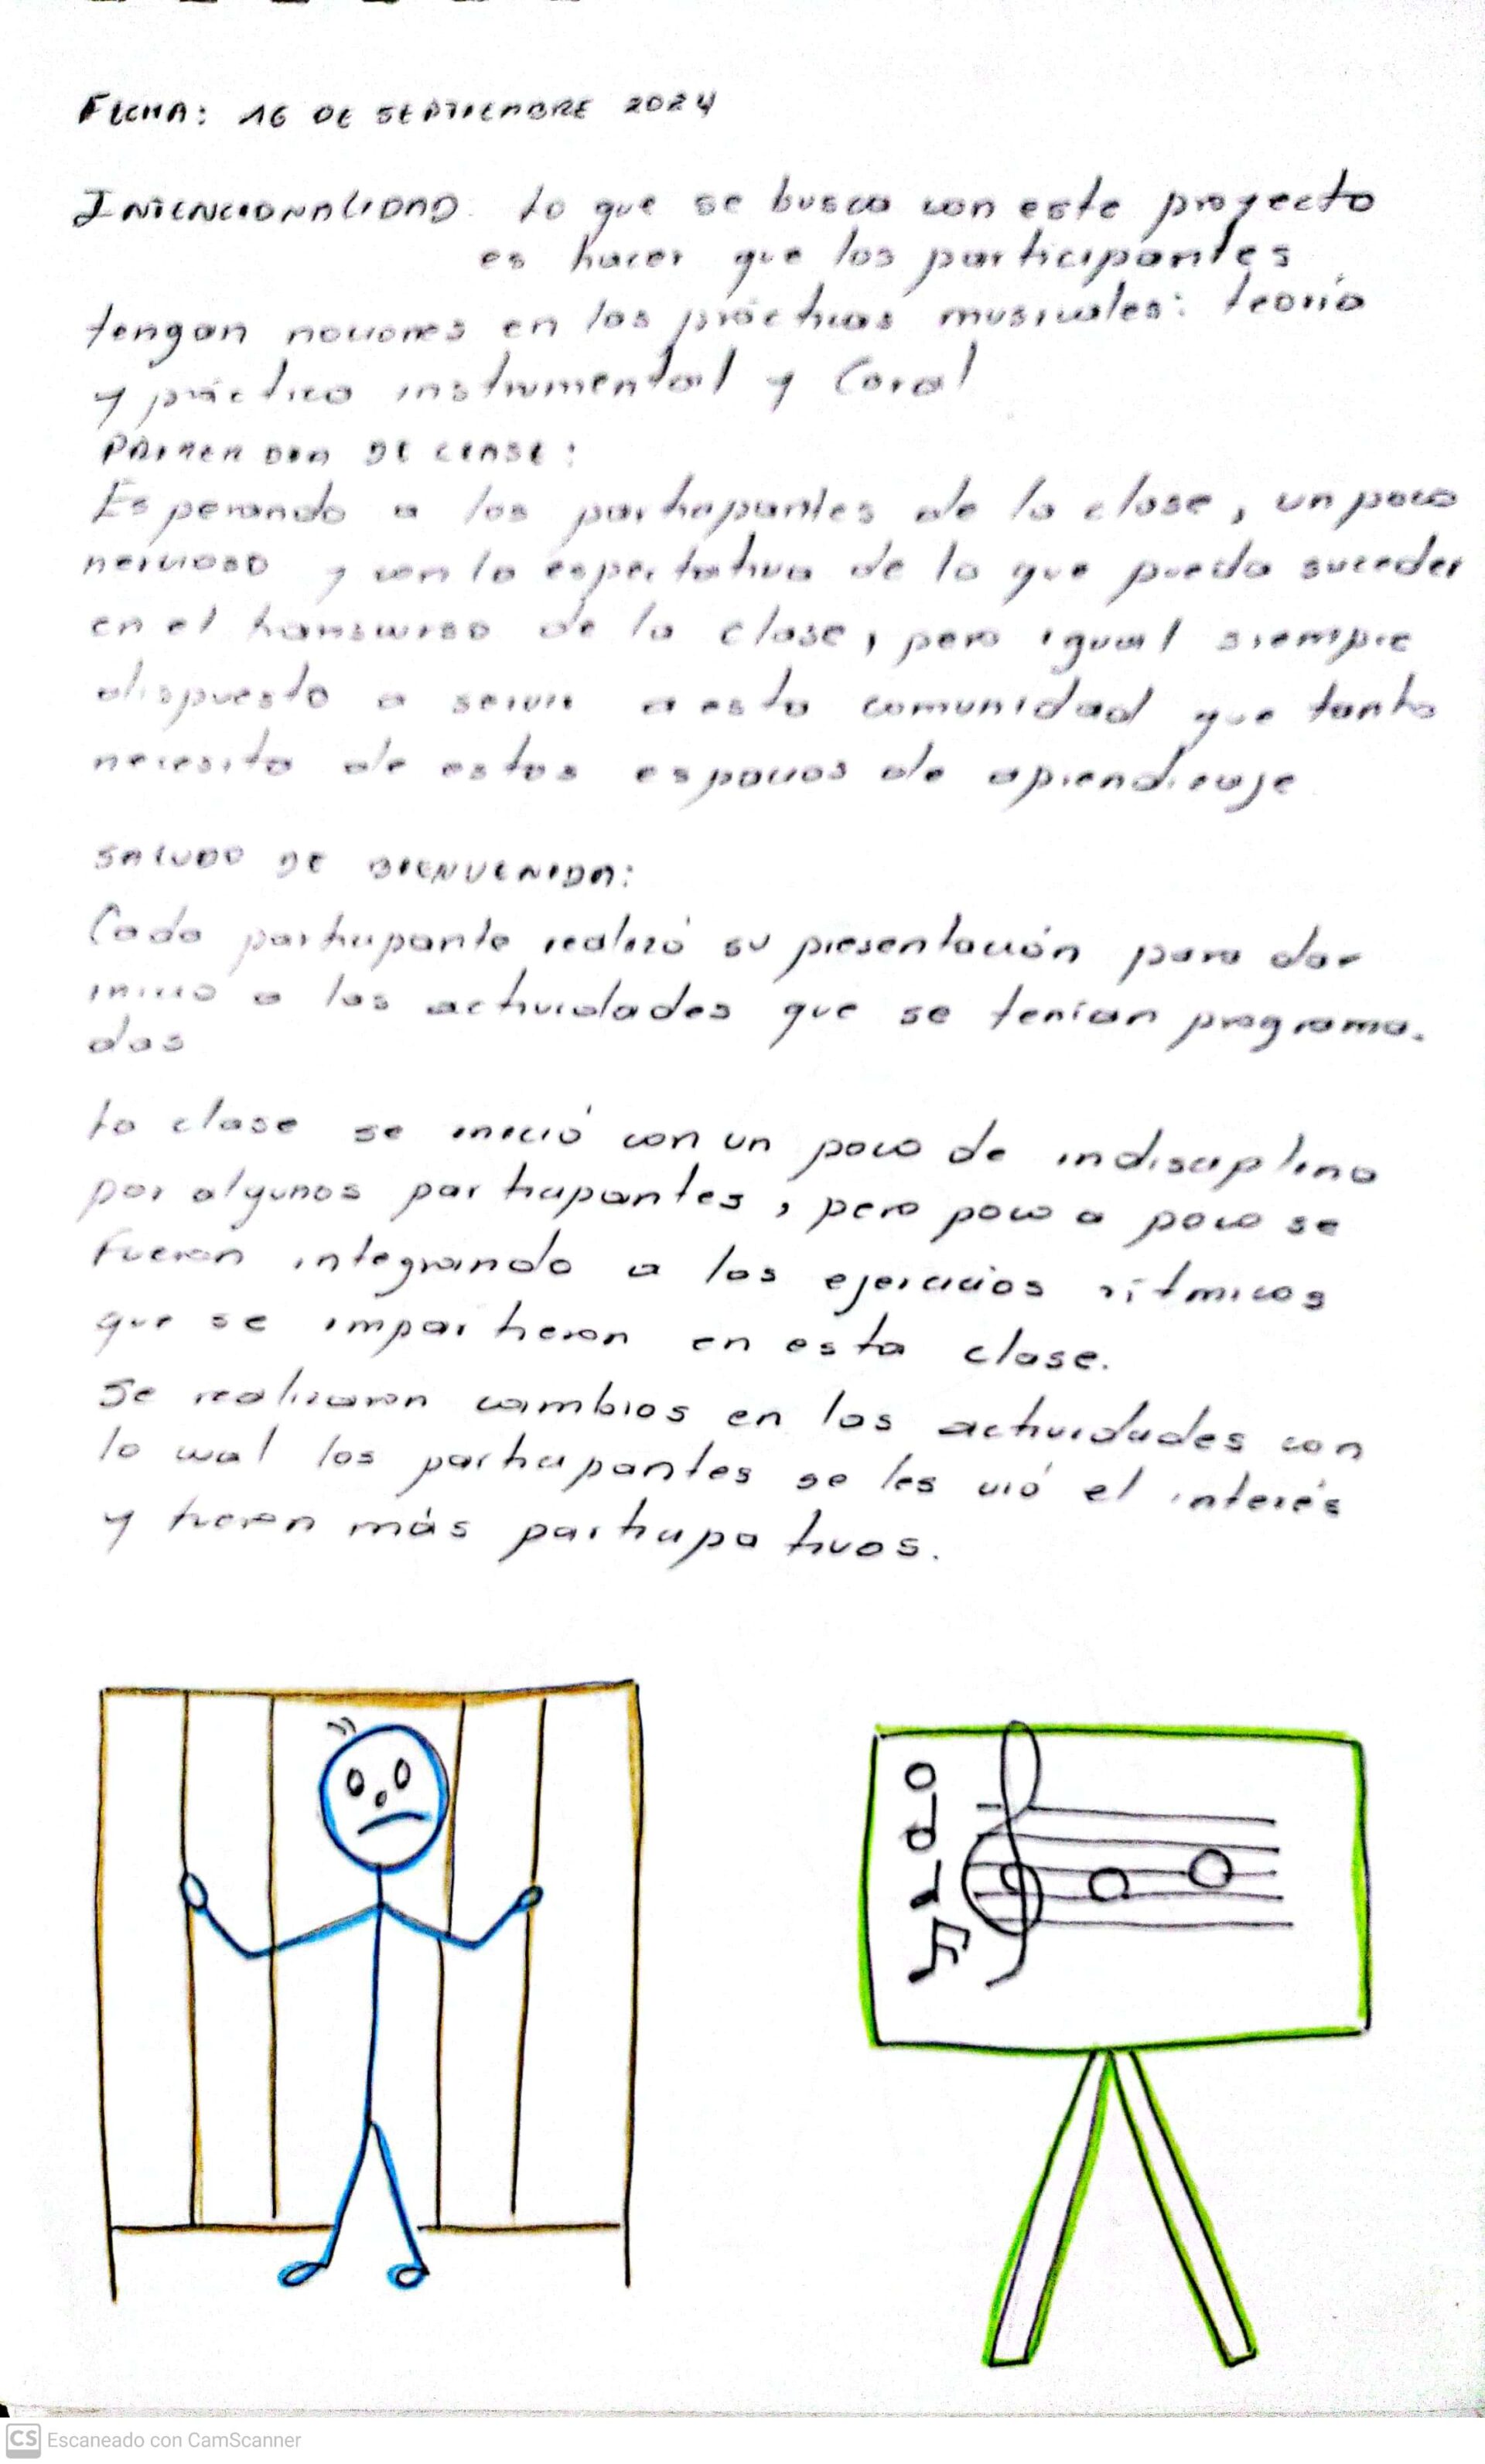 FECHA: 16 DE SEPTIEMBRE 2024
INTENCIONALIDAD. Lo que se busca con este proyecto
es hacer que los participantes
tengan nociones en las prácticas musicales: teoría
y práctica instrumental y Coral
PRIMER DIA DE CLASE:
Esperando a los participantes de la clase, un poco
nervioso y con la espectativa de lo que pueda suceder
en el transcurso de la clase, pero igual siempre
dispuesto a servir a esta comunidad que tanto
necesita de estos espacios de aprendizaje
SALUDO DE BIENVENIDA:
Cada participante realizó su presentación para dar
inicio a las actividades que se tenían programa-
das
La clase se inició con un poco de indisciplina
por algunos participantes, pero poco a poco se
fueron integrando a los ejercicios rítmicos
que se impartieron en esta clase.
Se realizaron cambios en las actividades con
lo cual los participantes se les vió el interés
y más participativos.
CS Escaneado con CamScanner